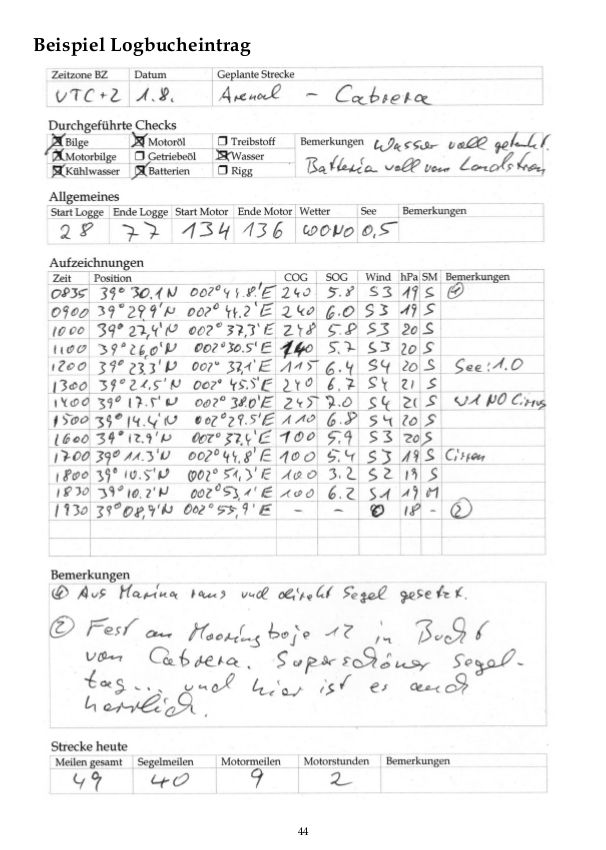 Beispiel Logbucheintrag
Zeitzone BZ Datum Geplante Strecke
UTC+2 1.8. Arenal - Cabrera
Durchgeführte Checks
Bilge Motoröl Treibstoff Bemerkungen Wasser voll getankt.
Motorbilge Getriebeöl Wasser Batteria voll vom Landstrom
Kühlwasser Batterien Rigg
Allgemeines
Start Logge Ende Logge Start Motor Ende Motor Wetter See Bemerkungen
28 77 134 136 WONO 0,5
Aufzeichnungen
Zeit Position COG SOG Wind hPa SM Bemerkungen
0835 39° 30.1'N 002° 44.8'E 240 5.8 S3 19 S ①
0900 39° 29,9'N 002° 44.2'E 240 6.0 S3 19 S
1000 39° 27,4'N 002° 37,3'E 248 5.8 S3 20 S
1100 39° 26,0'N 002° 30.5'E 140 5.7 S3 20 S
1200 39° 23.3'N 002° 37,1'E 115 6.4 S4 20 S See: 1.0
1300 39° 21,5'N 002° 45.5'E 240 6.7 S4 21 S
1400 39° 17.5'N 002° 38.0'E 245 7.0 S4 21 S W1 NO Cirrus
1500 39° 14.4'N 002° 29.5'E 110 6.8 S4 20 S
1600 39° 12.9'N 002° 37,4'E 100 5.9 S3 20 S
1700 39° 11.3'N 002° 44,8'E 100 5.4 S3 19 S Cirren
1800 39° 10.5'N 002° 51,3'E 100 3.2 S2 19 S
1830 39° 10.2'N 002° 53,1'E 100 6.2 S1 19 M
1930 39° 08,9'N 002° 55,9'E - - 0 18 - ②
Bemerkungen
① Aus Marina raus und direkt Segel gesetzt.
② Fest an Mooringboje 12 in Bucht
von Cabrera. Superschöner Segel-
tag... und hier ist es auch
herrlich.
Strecke heute
Meilen gesamt Segelmeilen Motormeilen Motorstunden Bemerkungen
49 40 9 2
44